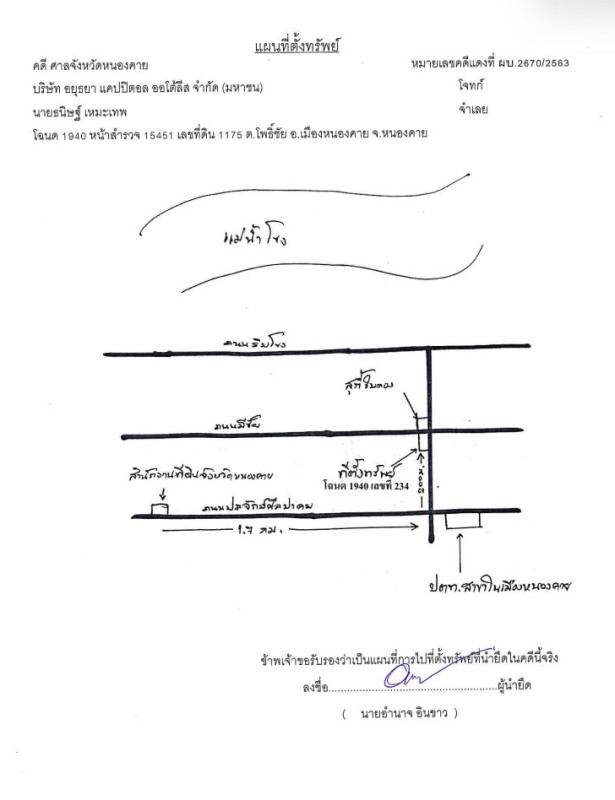 แผนที่ตั้งทรัพย์
คดี ศาลจังหวัดหนองคาย หมายเลขคดีแดงที่ ผบ.2670/2563
บริษัท อยุธยา แคปปิตอล ออโต้ลีส จำกัด (มหาชน) โจทก์
นายธนิษฐ์ เหมะเทพ จำเลย
โฉนด 1940 หน้าสำรวจ 15451 เลขที่ดิน 1175 ต.โพธิ์ชัย อ.เมืองหนองคาย จ.หนองคาย
แม่น้ำโขง
ถนนริมโขง
ถนนมีชัย
สำนักงานที่ดินจังหวัดหนองคาย
ที่ตั้งทรัพย์
โฉนด 1940 เลขที่ 234
ถนนประจักษ์ศิลปาคม
1.7 กม.
ปตท.สาขาในเมืองหนองคาย
ข้าพเจ้าขอรับรองว่าเป็นแผนที่การไปที่ตั้งทรัพย์ที่นำยึดในคดีนี้จริง
ลงชื่อ......................................................ผู้นำยึด
( นายอำนาจ อินขาว )